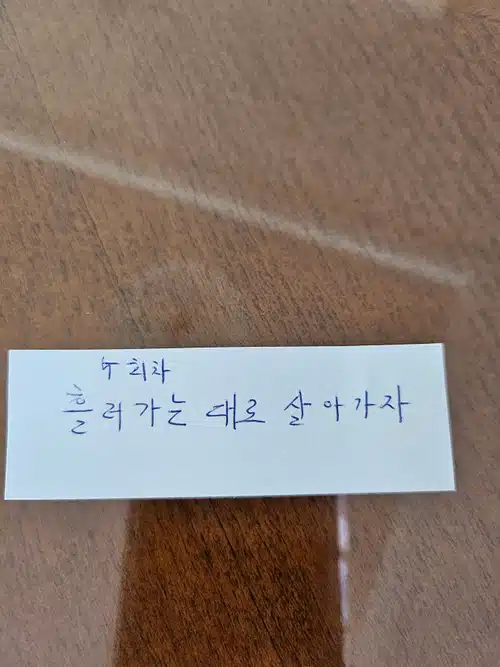 회차
흘러가는 대로 살아가자